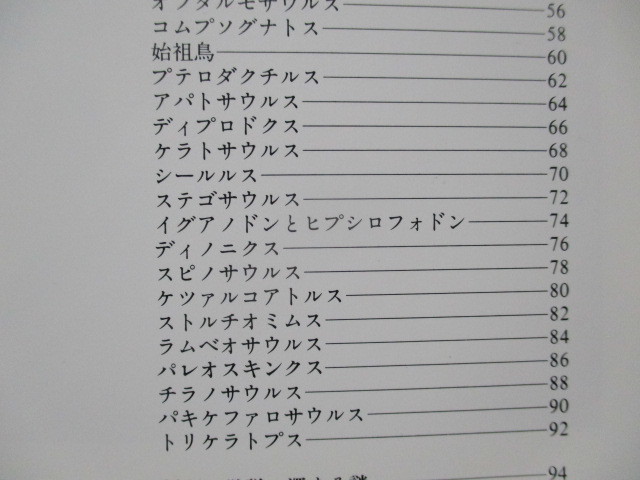 オフタルモサウルス 56
コムプソグナトス 58
始祖鳥 60
プテロダクチルス 62
アパトサウルス 64
ディプロドクス 66
ケラトサウルス 68
シールルス 70
ステゴサウルス 72
イグアノドンとヒプシロフォドン 74
ディノニクス 76
スピノサウルス 78
ケツァルコアトルス 80
ストルチオミムス 82
ラムベオサウルス 84
パレオスキンクス 86
チラノサウルス 88
パキケファロサウルス 90
トリケラトプス 92
94